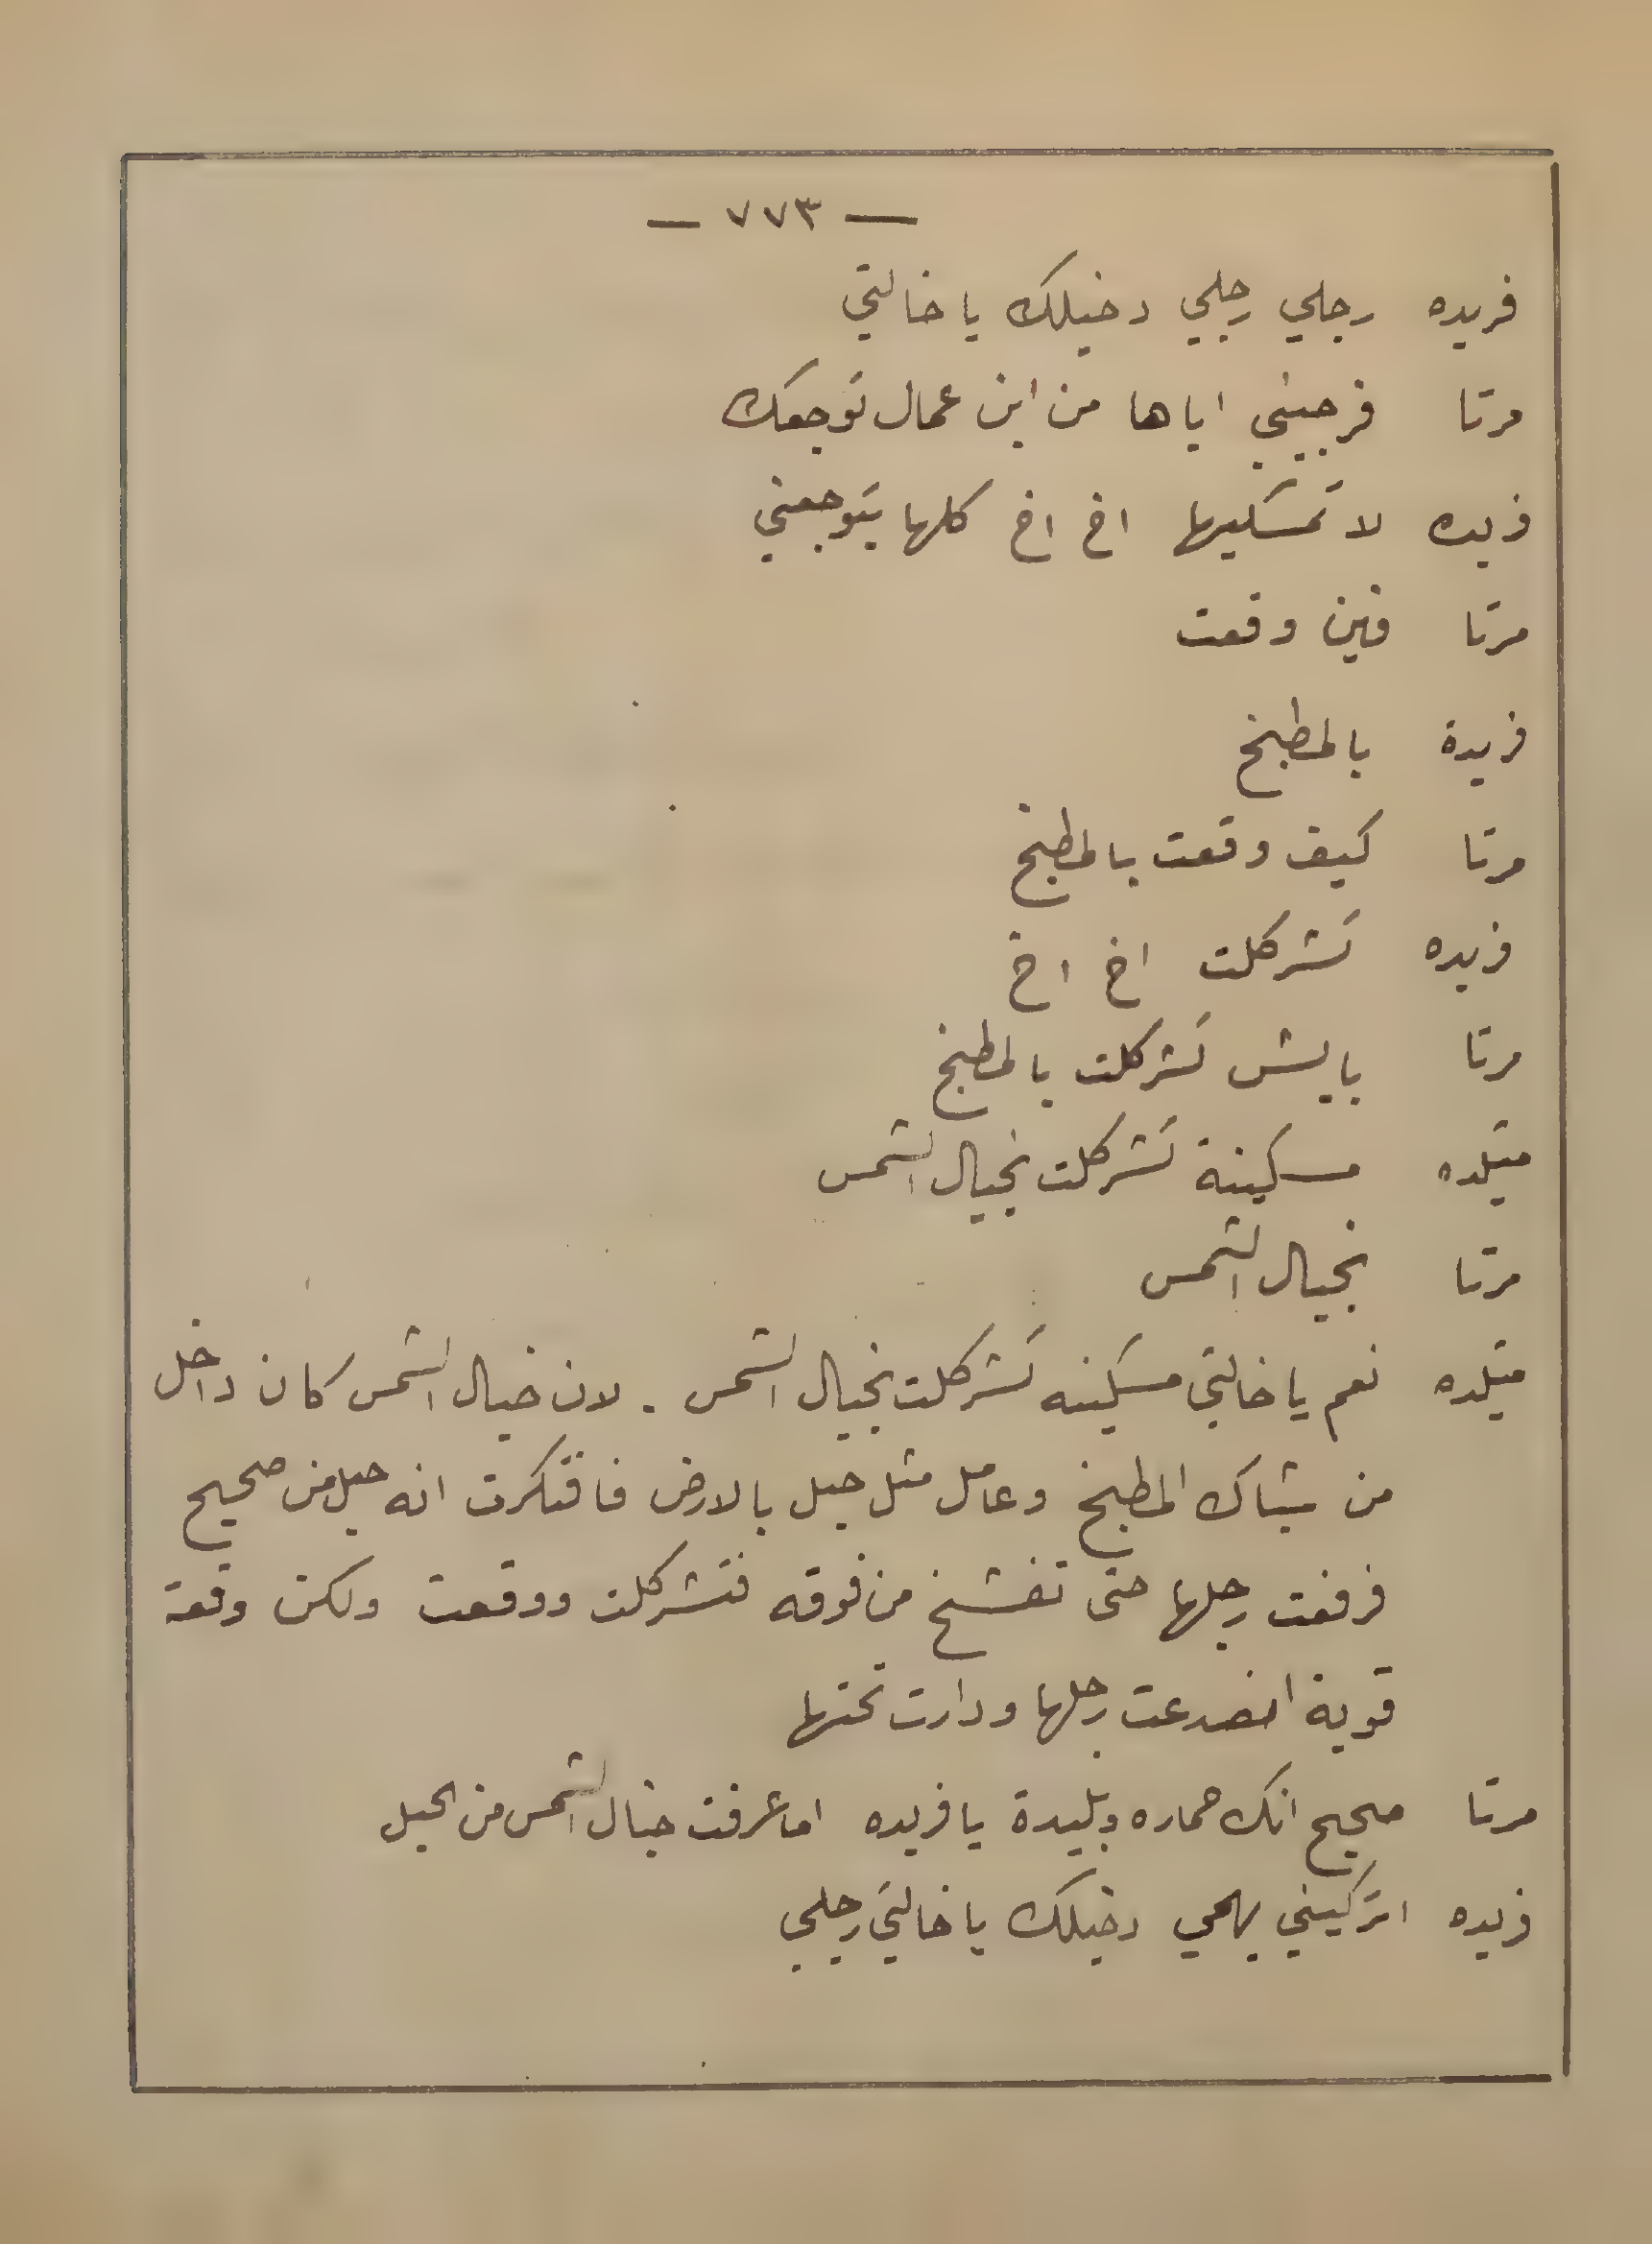 — ٧٧٣ —
فريده رجلي رجلي دخيلك يا خالتي
مرتا فرجيني اياها من اين عمال توجعك
فريده لا تمسكيها اخ اخ كلها بتوجعني
مرتا فين وقعت
فريدة بالمطبخ
مرتا كيف وقعت بالمطبخ
فريده تشركلت اخ اخ
مرتا بايش تشركلت بالمطبخ
متيلده مسكينة تشركلت بخيال الشمس
مرتا بخيال الشمس
متيلده نعم يا خالتي مسكينه تشركلت بخيال الشمس . لان خيال الشمس كان داخل
من شباك المطبخ وعامل مثل حبل بالارض فافتكرت انه حبل من صحيح
فرفعت رجلها حتى تفشخ من فوقه فتشركلت ووقعت ولكن وقعة
قوية انصدعت رجلها ودارت تحتها
مرتا صحيح انك حماره وبليدة يا فريده اما عرفت خيال الشمس من الحبل
فريده اتركيني بهمي دخيلك يا خالتي رجلي